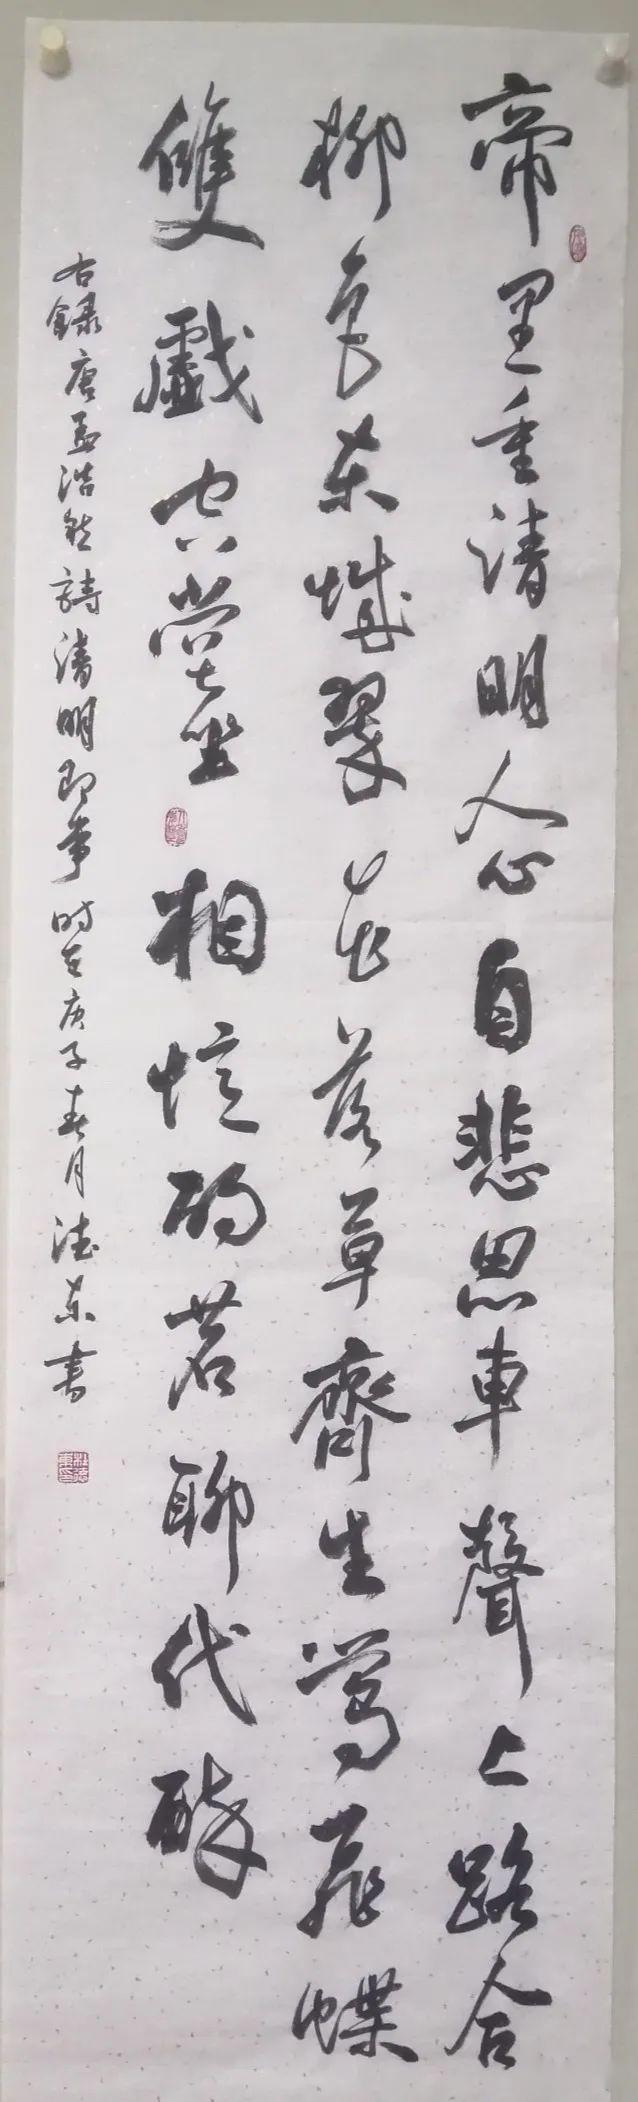 帝里重清明人心自悲思車聲上路合
柳色东城翠花落草齊生鶯飛蝶
雙戲空堂坐相憶酌茗聊代醉
右録唐孟浩然詩清明即事時在庚子春月德东書